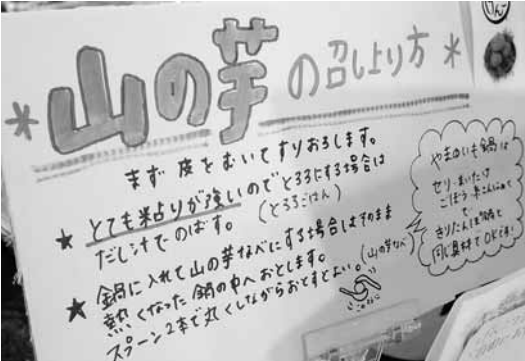 *山の芋の召し上り方*
まず 皮をむいてすりおろします。
★ とても粘りが強いのでとろろにする場合は
だし汁でのばす。(とろろごはん)
★ 鍋に入れて山の芋なべにする場合はそのまま
熱くなった鍋の中へおとします。(山の芋なべ)
スプーン2本で丸くしながらおとすとよい。
やまのいも鍋は
セリ・まいたけ
ごぼう・糸こん
で
きりたんぽ鍋と
同じ具材でOKです!